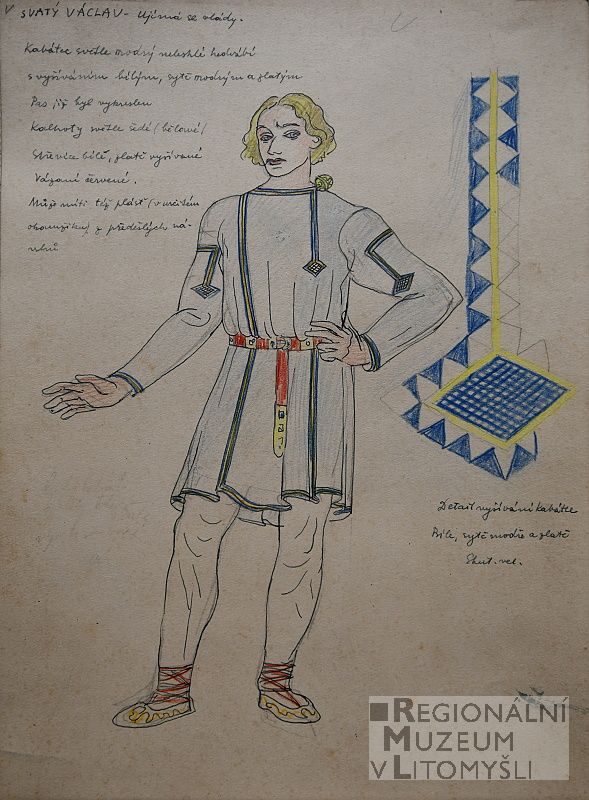 V SVATÝ VÁCLAV - Ujímá se vlády.
Kabátec světle modrý nelesklé hedvábí
s vyšíváním bílým, sytě modrým a zlatým
Pas již byl vykreslen
Kalhoty světle šedé (bělavé)
Střevíce bílé, zlatě vyšívané
Vázání červené.
Může míti též plášť (v určitém
okamžiku) z předešlých ná-
vrhů
Detail vyšívání kabátce
Bíle, sytě modře a zlatě
Skut. vel.
REGIONÁLNÍ
MUZEUM
V LITOMYŠLI